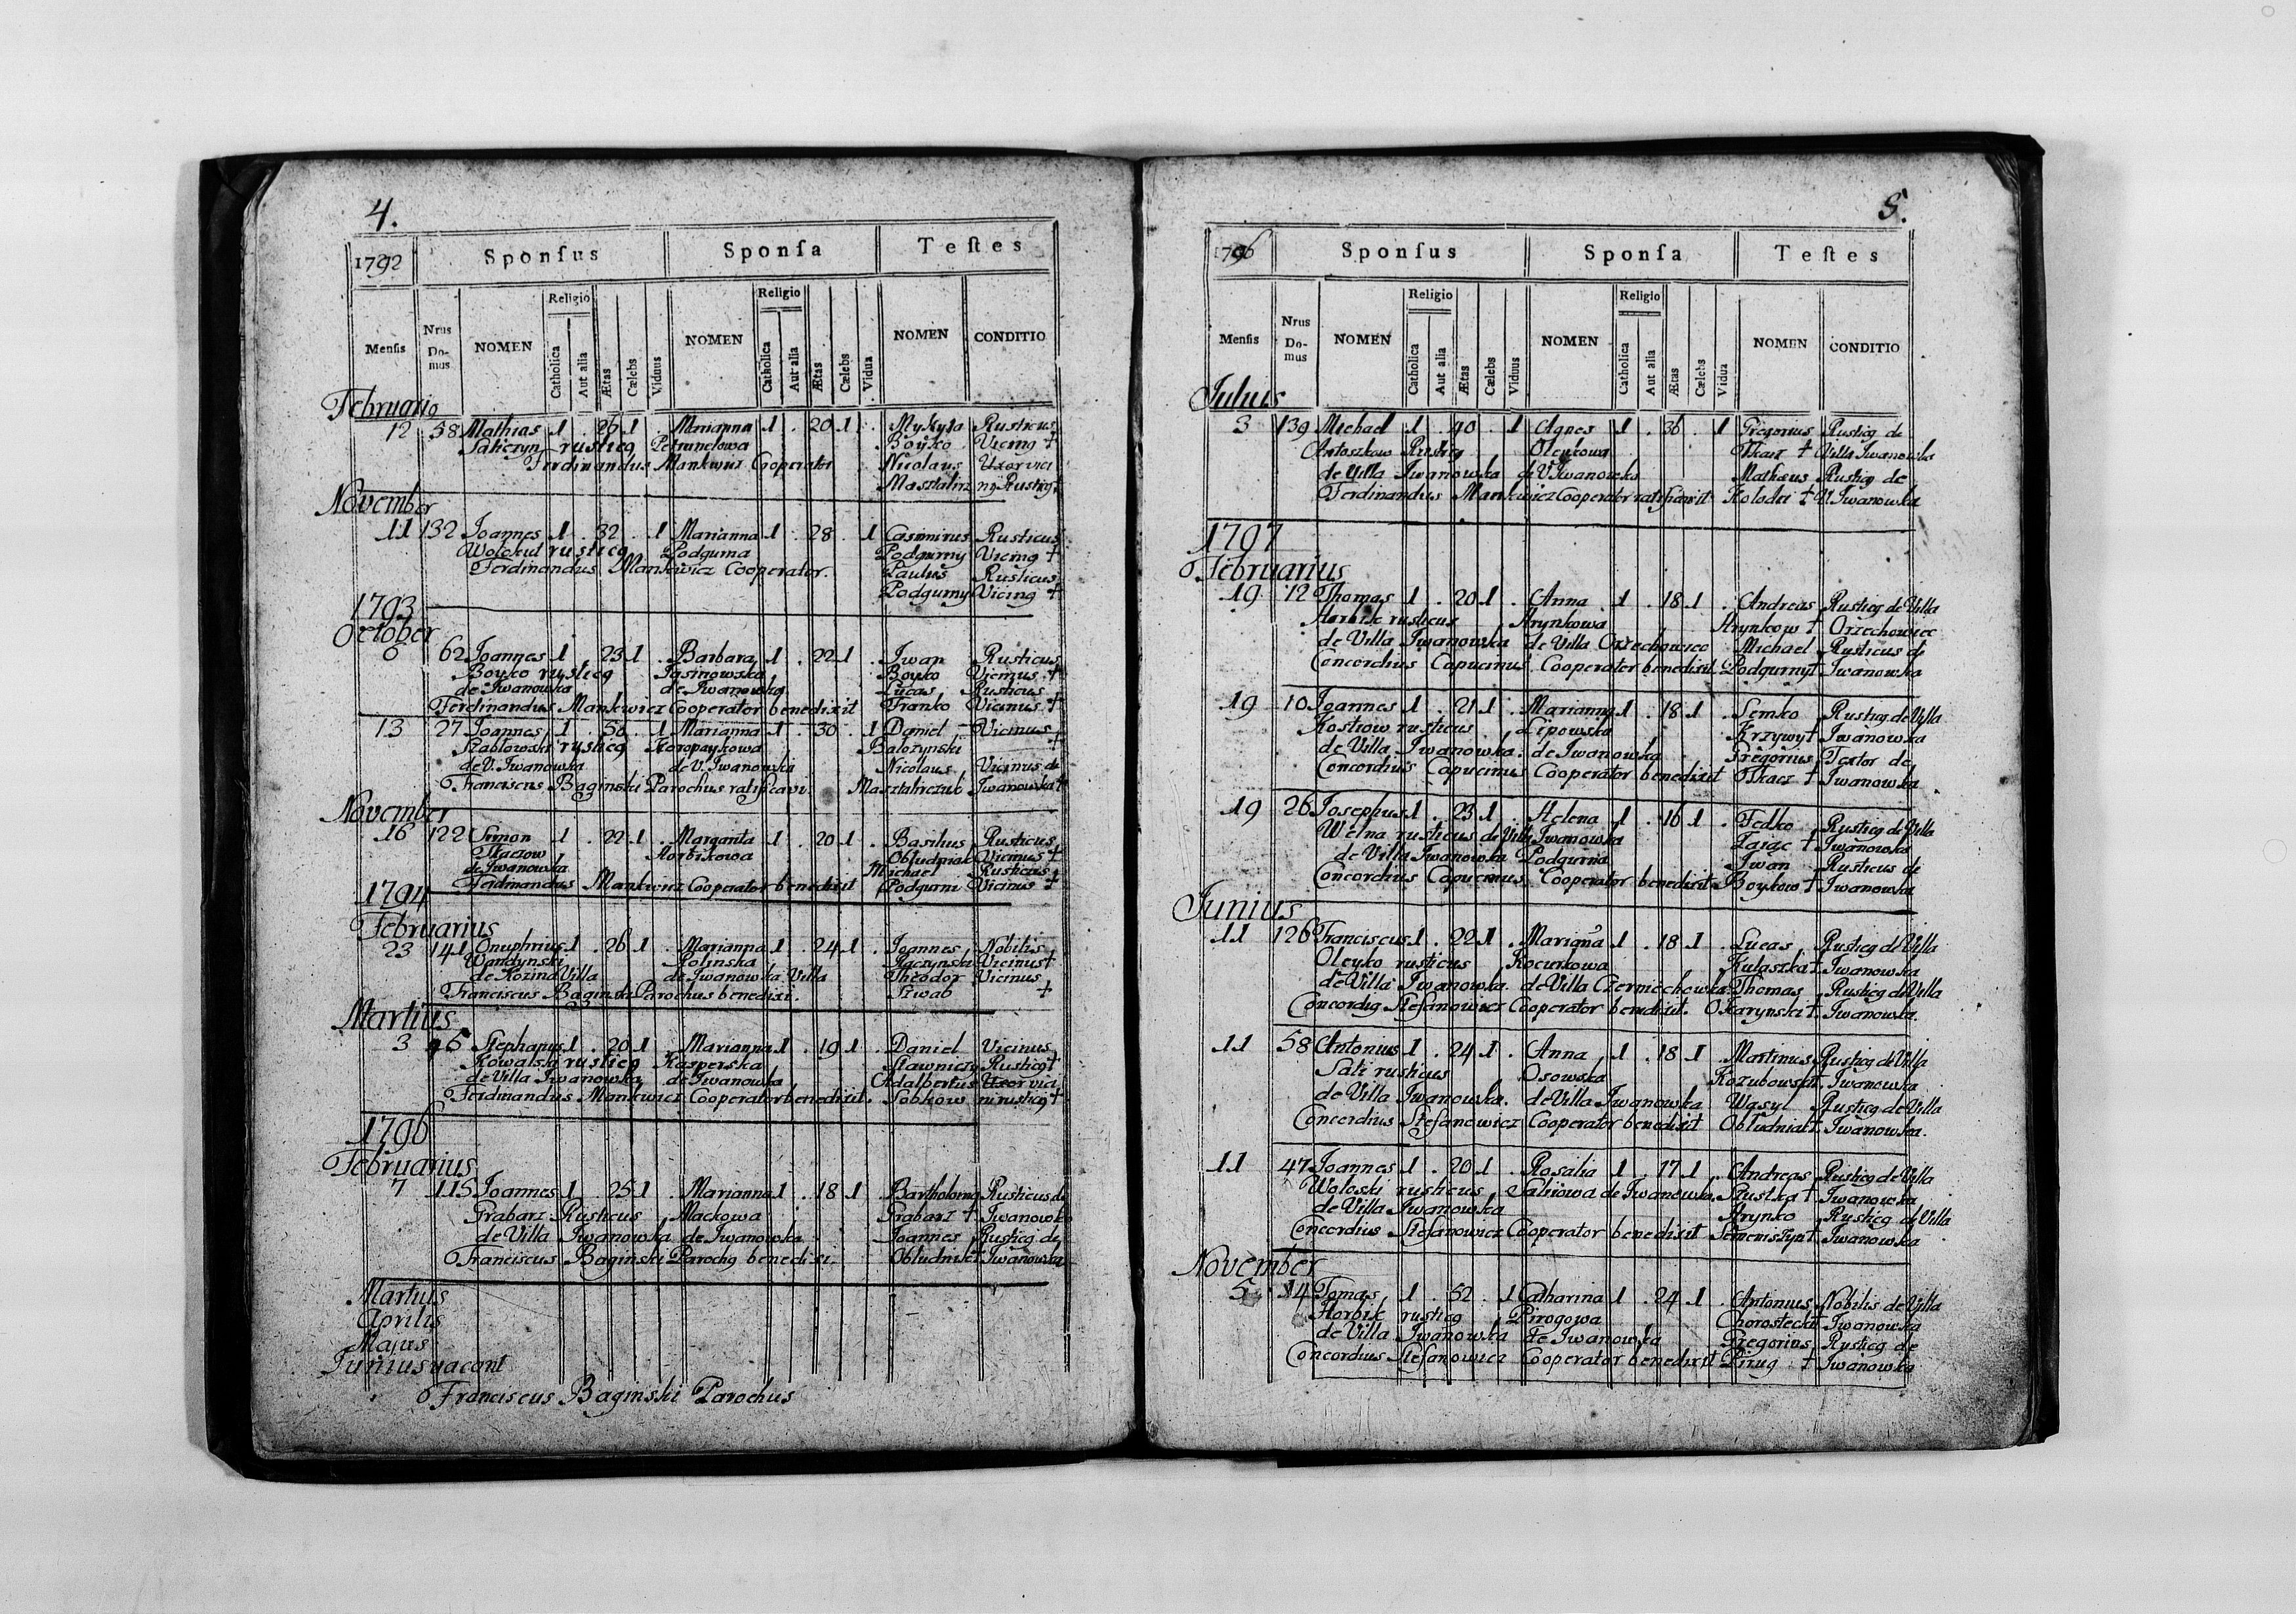 4.
1792 Sponſus Sponſa Teſtes
Menſis Nrus Do-mus NOMEN Religio Catholica Aut alia Ætas Cælebs Viduus NOMEN Religio Catholica Aut alia Ætas Cælebs Vidua NOMEN CONDITIO
Februario
12 58 Mathias 1 . 26 1 . Marianna 1 . 20 1 . Mykyta Rusticus
rusticq Boyko Vicinq +
Ferdinandus Mankiwicz Cooperator Nicolaus Uxor vici
nq Rusticq +
November
11 132 Joannes 1 . 32 . 1 Marianna 1 . 28 . 1 Casimirus Rusticus
rusticq Podgurna Podgurny Vicinq +
Ferdinandus Mankiwicz Cooperator. Paulus Rusticus
Podgurny Vicinq +
1793
October
6 62 Joannes 1 . 23 1 . Barbara 1 . 22 1 . Iwan Rusticus
Boyko rusticq Jasinowska Boyko Vicinus +
de Iwanowka de Iwanowka Lucas Rusticus
Ferdinandus Mankiwicz Cooperator benedixit Franko Vicinus +
13 27 Joannes 1 . 50 . 1 Marianna 1 . 30 . 1 Daniel Vicinus
Szablowski rusticq Koropaykowa Balozynski +
de V. Iwanowka de V. Iwanowka Nicolaus Vicinus de
Franciscus Baginski Parochus ratificavi. Masztalirczuk Iwanowka +
November
16 122 Simon 1 . 22 1 . Marganta 1 . 20 1 . Basilius Rusticus
Tkaczow Horbikowa Obludniak Vicinus +
de Iwanowka Michael Rusticus
Ferdinandus Mankwicz Cooperator benedixit Podgurni Vicinus +
1794
Februarius
23 141 Onuphrius 1 . 26 1 . Marianna 1 . 24 1 . Joannes Nobilis
Wandynski Kolinska Raczynski Vicinus +
de Kozina Villa de Iwanowka Villa Theodor Vicinus
Franciscus Baginski Parochus benedixi. Szwab +
Martius
3 45 Stephanus 1 . 20 1 . Marianna 1 . 19 1 . Daniel Vicinus
Kowalski rusticq Kasperska Stawniczy Rusticq +
de Villa Iwanowka de Iwanowka Adalbertus Uxor vici
Ferdinandus Mankiwicz Cooperator benedixit. Sobkow ni rusticq +
1796
Februarius
7 115 Joannes 1 . 25 1 . Marianna 1 . 18 1 . Bartholomq Rusticus de
Grabarz Rusticus Mackowa Grabarz + Iwanowka
de Villa Iwanowka de Iwanowka Joannes Rusticq de
Franciscus Baginski Parochq benedixi. Obludniak + Iwanowka
Martius
Aprilis
Majus
Junius vacant
Franciscus Baginski Parochus
5.
1796 Sponſus Sponſa Teſtes
Menſis Nrus Do-mus NOMEN Religio Catholica Aut alia Ætas Cælebs Viduus NOMEN Religio Catholica Aut alia Ætas Cælebs Vidua NOMEN CONDITIO
Julius
3 139 Michael 1 . 40 . 1 Agnes 1 . 36 . 1 Gregorius Rusticq de
Antoszkow Rusticq Oleykowa Tkacz + Villa Iwanowka
de Villa Iwanowka de V. Iwanowka Mathæus Rusticq de
Ferdinandus Mankiewicz Cooperator ratificavit Kolada + V. Iwanowka
1797
Februarius
19 12 Thomas 1 . 20 1 . Anna 1 . 18 1 . Andreas Rusticq de Villa
Horbik rusticus Hrynkowa Hrynkow + Orzechowiec
de Villa Iwanowka de Villa Orzechowiec Michael Rusticus de
Concordius Capucinus Cooperator benedixit Podgurny + Iwanowka
19 10 Joannes 1 . 21 1 . Marianna 1 . 18 1 . Semko Rusticq de Villa
Kostiow rusticus Lipowska Krzywy + Iwanowka
de Villa Iwanowka. de Iwanowka Gregorius Textor de
Concordius Capucinus Cooperator benedixit Tkacz + Iwanowka
19 26 Josephus 1 . 23 1 . Helena 1 . 16 1 . Fedko Rusticq de Villa
Welna rusticus de Villa Iwanowka Zając + Iwanowka
de Villa Iwanowka Podgurna Iwan Rusticus de
Concordius Capucinus Cooperator benedixit Boykow + Iwanowka
Junius
11 126 Franciscus 1 . 22 1 . Marianna 1 . 18 1 . Lucas Rusticq de Villa
Oleyko rusticus Kocurkowa Kulaszka + Iwanowka
de Villa Iwanowka. de Villa Czerniechowka. Thomas Rusticq de Villa
Concordiq Stefanowicz Cooperator benedixit. Okarynski + Iwanowka.
11 58 Antonius 1 . 24 1 . Anna 1 . 18 1 . Martinus Rusticq de Villa
Sali rusticus Osowska Kozubowski +. Iwanowka
de Villa Iwanowka. de Villa Iwanowka Wasyl Rusticq de Villa
Concordius Stefanowicz Cooperator benedixit Obludniak +. Iwanowka.
11 47 Joannes 1 . 20 1 . Rosalia 1 . 17 1 . Andreas Rusticq de Villa
Woloski rusticus Saliiowa de Iwanowka. Kustka + Iwanowka
de Villa Iwanowka Hrynko Rusticq de Villa
Concordius Stefanowicz Cooperator benedixit Semeniszyn + Iwanowka
November
5 14 Tomas 1 . 52 . 1 Catharina 1 . 24 1 . Antonius Nobilis de Villa
Horbik rusticq Pirogowa Chorostecki + Iwanowka
de Villa Iwanowka de Iwanowka Gregorius Rusticq de
Concordius Stefanowicz Cooperator benedixit Pirug + Iwanowka